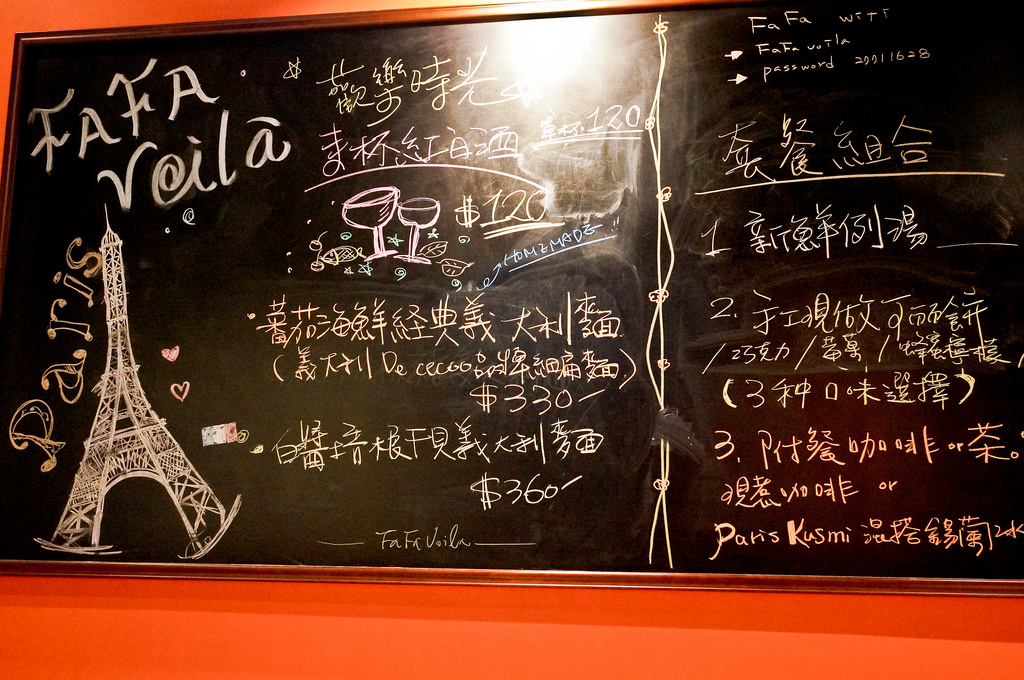 FAFA
Voilā
Paris
歡樂時光
来杯紅白酒
單杯120
$120
HOMEMADE!!
蕃茄海鮮経典義大利麵
(義大利De cecco品牌細扁麵)
$330
白醬培根干貝義大利麵
$360
FaFa Voila
FaFa wifi
FaFa voila
password 20011628
套餐組合
1 新鮮例湯
2. 手工現做可麗餅
/巧克力/蓝莓/蜂蜜檸檬/
(3种口味選擇)
3. 附餐咖啡or茶。
現煮咖啡 or
Paris Kusmi 混搭錫蘭